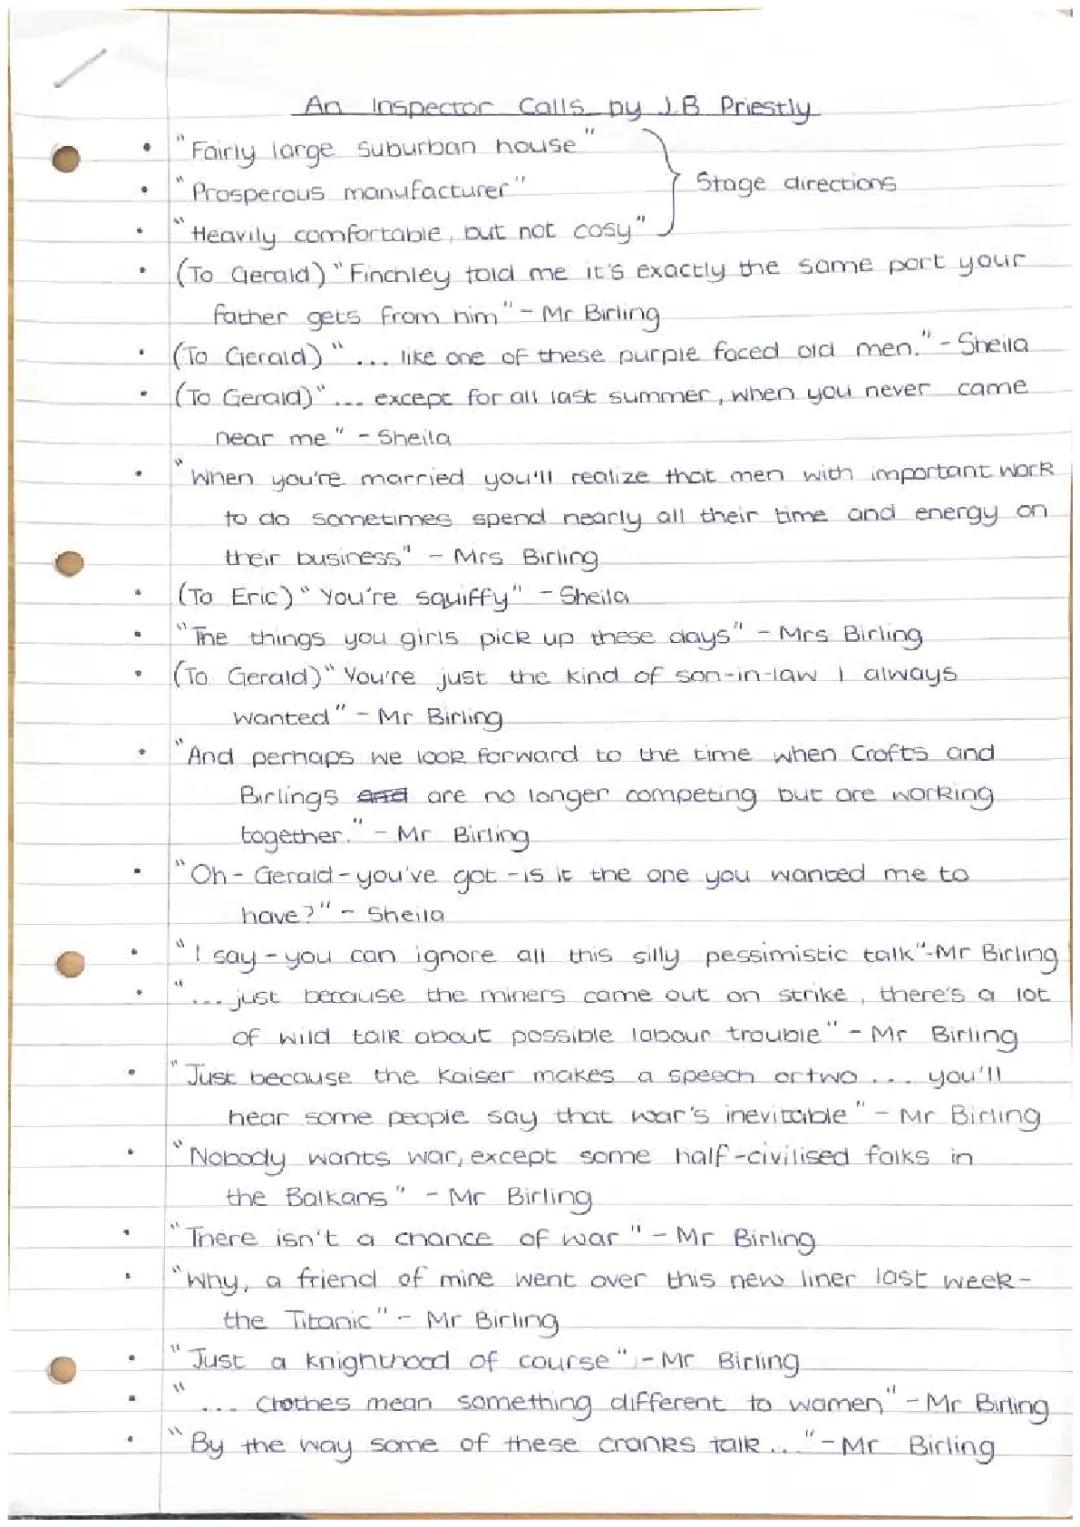 An Inspector Calls by J.B Priestly
• "Fairly large suburban house"
• "Prosperous manufacturer"
Stage directions
• "Heavily comfortable, but not cosy"
• (To Gerald) "Finchley told me it's exactly the same port your
father gets from him" - Mr Birling
• (To Gerald) "... like one of these purple faced old men." - Sheila
• (To Gerald) "... except for all last summer, when you never came
near me" - Sheila
• "When you're married you'll realize that men with important work
to do sometimes spend nearly all their time and energy on
their business" - Mrs Birling
• (To Eric) "You're squiffy" - Sheila
• "The things you girls pick up these days" - Mrs Birling
• (To Gerald) "You're just the kind of son-in-law I always
wanted" - Mr Birling
• "And perhaps we look forward to the time when Crofts and
Birlings and are no longer competing but are working
together." - Mr Birling
• "Oh - Gerald - you've got - is it the one you wanted me to
have?" - Sheila
• "I say - you can ignore all this silly pessimistic talk" - Mr Birling
• "... just because the miners came out on strike, there's a lot
of wild talk about possible labour trouble" - Mr Birling
• "Just because the Kaiser makes a speech or two ... you'll
hear some people say that war's inevitable" - Mr Birling
• "Nobody wants war, except some half-civilised folks in
the Balkans" - Mr Birling
• "There isn't a chance of war" - Mr Birling
• "Why, a friend of mine went over this new liner last week -
the Titanic" - Mr Birling
• "Just a knighthood of course" - Mr Birling
• "... Clothes mean something different to women" - Mr Birling
• "By the way some of these cranks talk ..." - Mr Birling